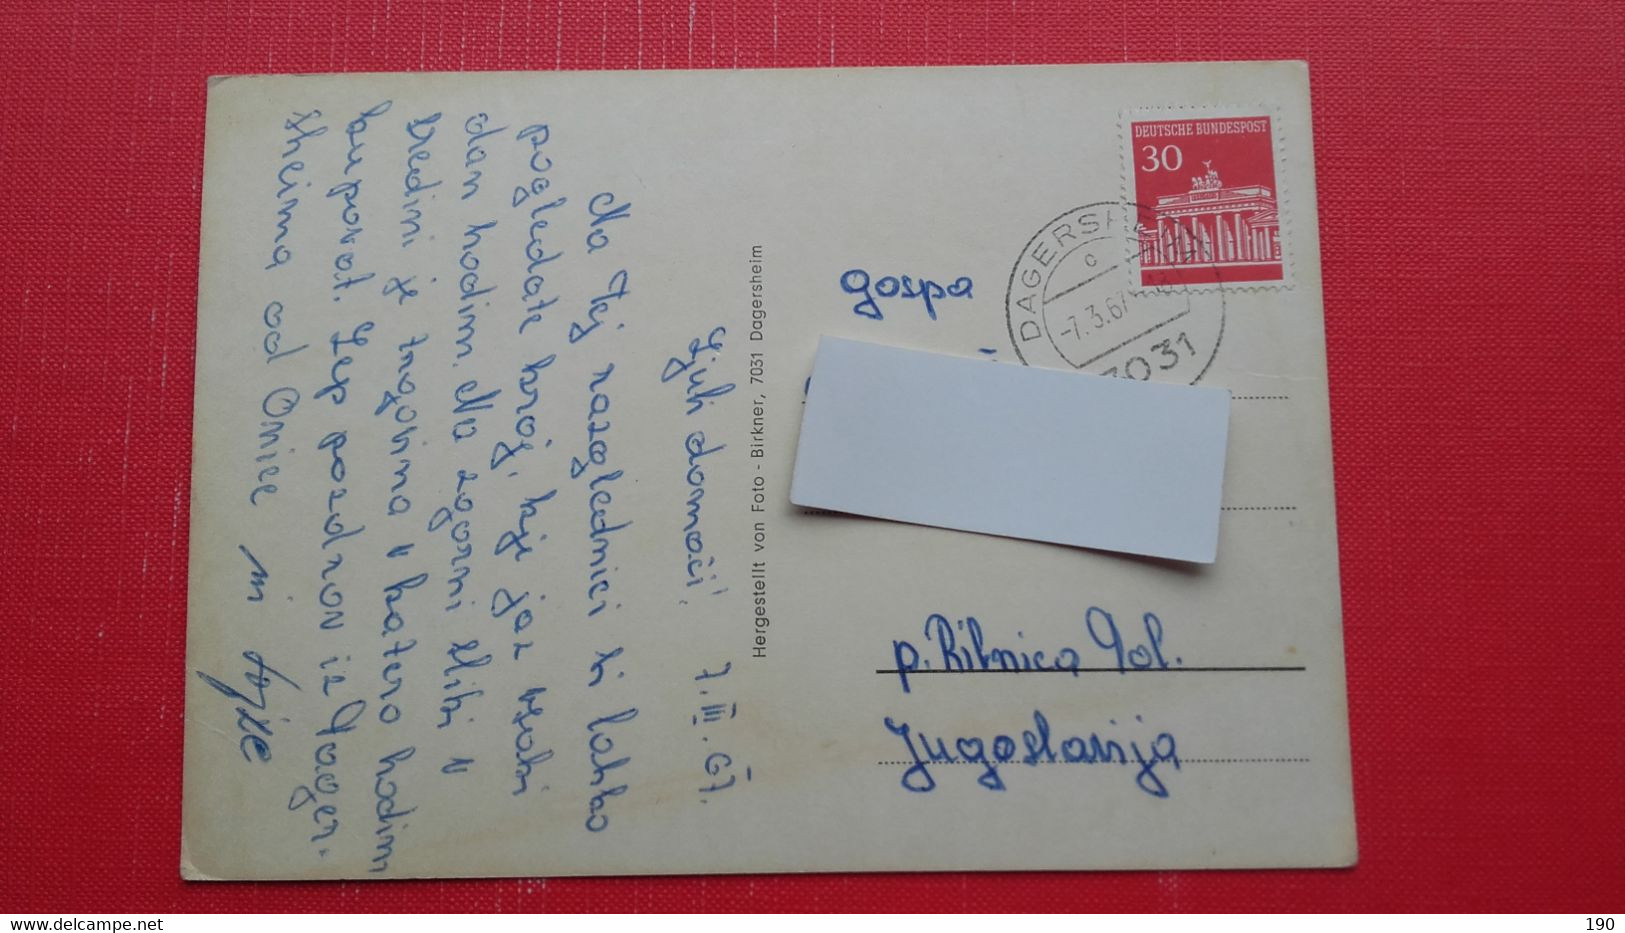 Ljubi domači! 7. III. 67.
Na tej razglednici bi lahko
pogledate kraj, kje jaz vsaki
dan hodim. Na zgorni sliki v
sredini je trgovina v katero hodim
kupovat. Lep pozdrav iz Dager-
sheima od Onice in
Hergestellt von Foto - Birkner, 7031 Dagersheim
DEUTSCHE BUNDESPOST
30
DAGERSHEIM
c
-7.3.67
7031
gospa
p. Ribnica Dol.
Jugoslavija
190